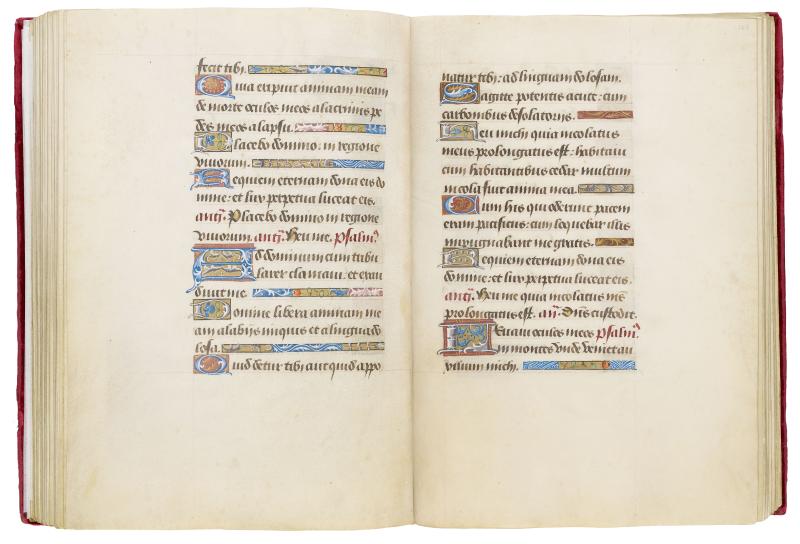 fecit tibi.
Quia eripuit animam meam
de morte oculos meos a lacrimis pe
des meos a lapsu.
Placebo domino: in regione
vivorum.
Requiem eternam dona eis do
mine: et lux perpetua luceat eis.
antz. Placebo domino in regione
vivorum. antz. Heu me. psalm9
Ad dominum cum tribu
larer clamavi: et exau
divit me.
Domine libera animam me
am a labijs iniquis et a lingua do
losa.
Quid detur tibi aut quid appo
natur tibi: ad linguam dolosam.
Sagitte potentis acute: cum
carbonibus desolatorijs.
Heu michi quia incolatus
meus prolongatus est: habitavi
cum habitantibus cedar multum
incola fuit anima mea.
Cum his qui oderunt pacem
eram pacificus: cum loquebar illis
impugnabant me gratis.
Requiem eternam dona eis
domine: et lux perpetua luceat eis.
antz. Heu me quia incolatus me9
prolongatus est. an. Dns custodit.
Levavi oculos meos psalm9
in montes: unde veniet au
xilium michi.